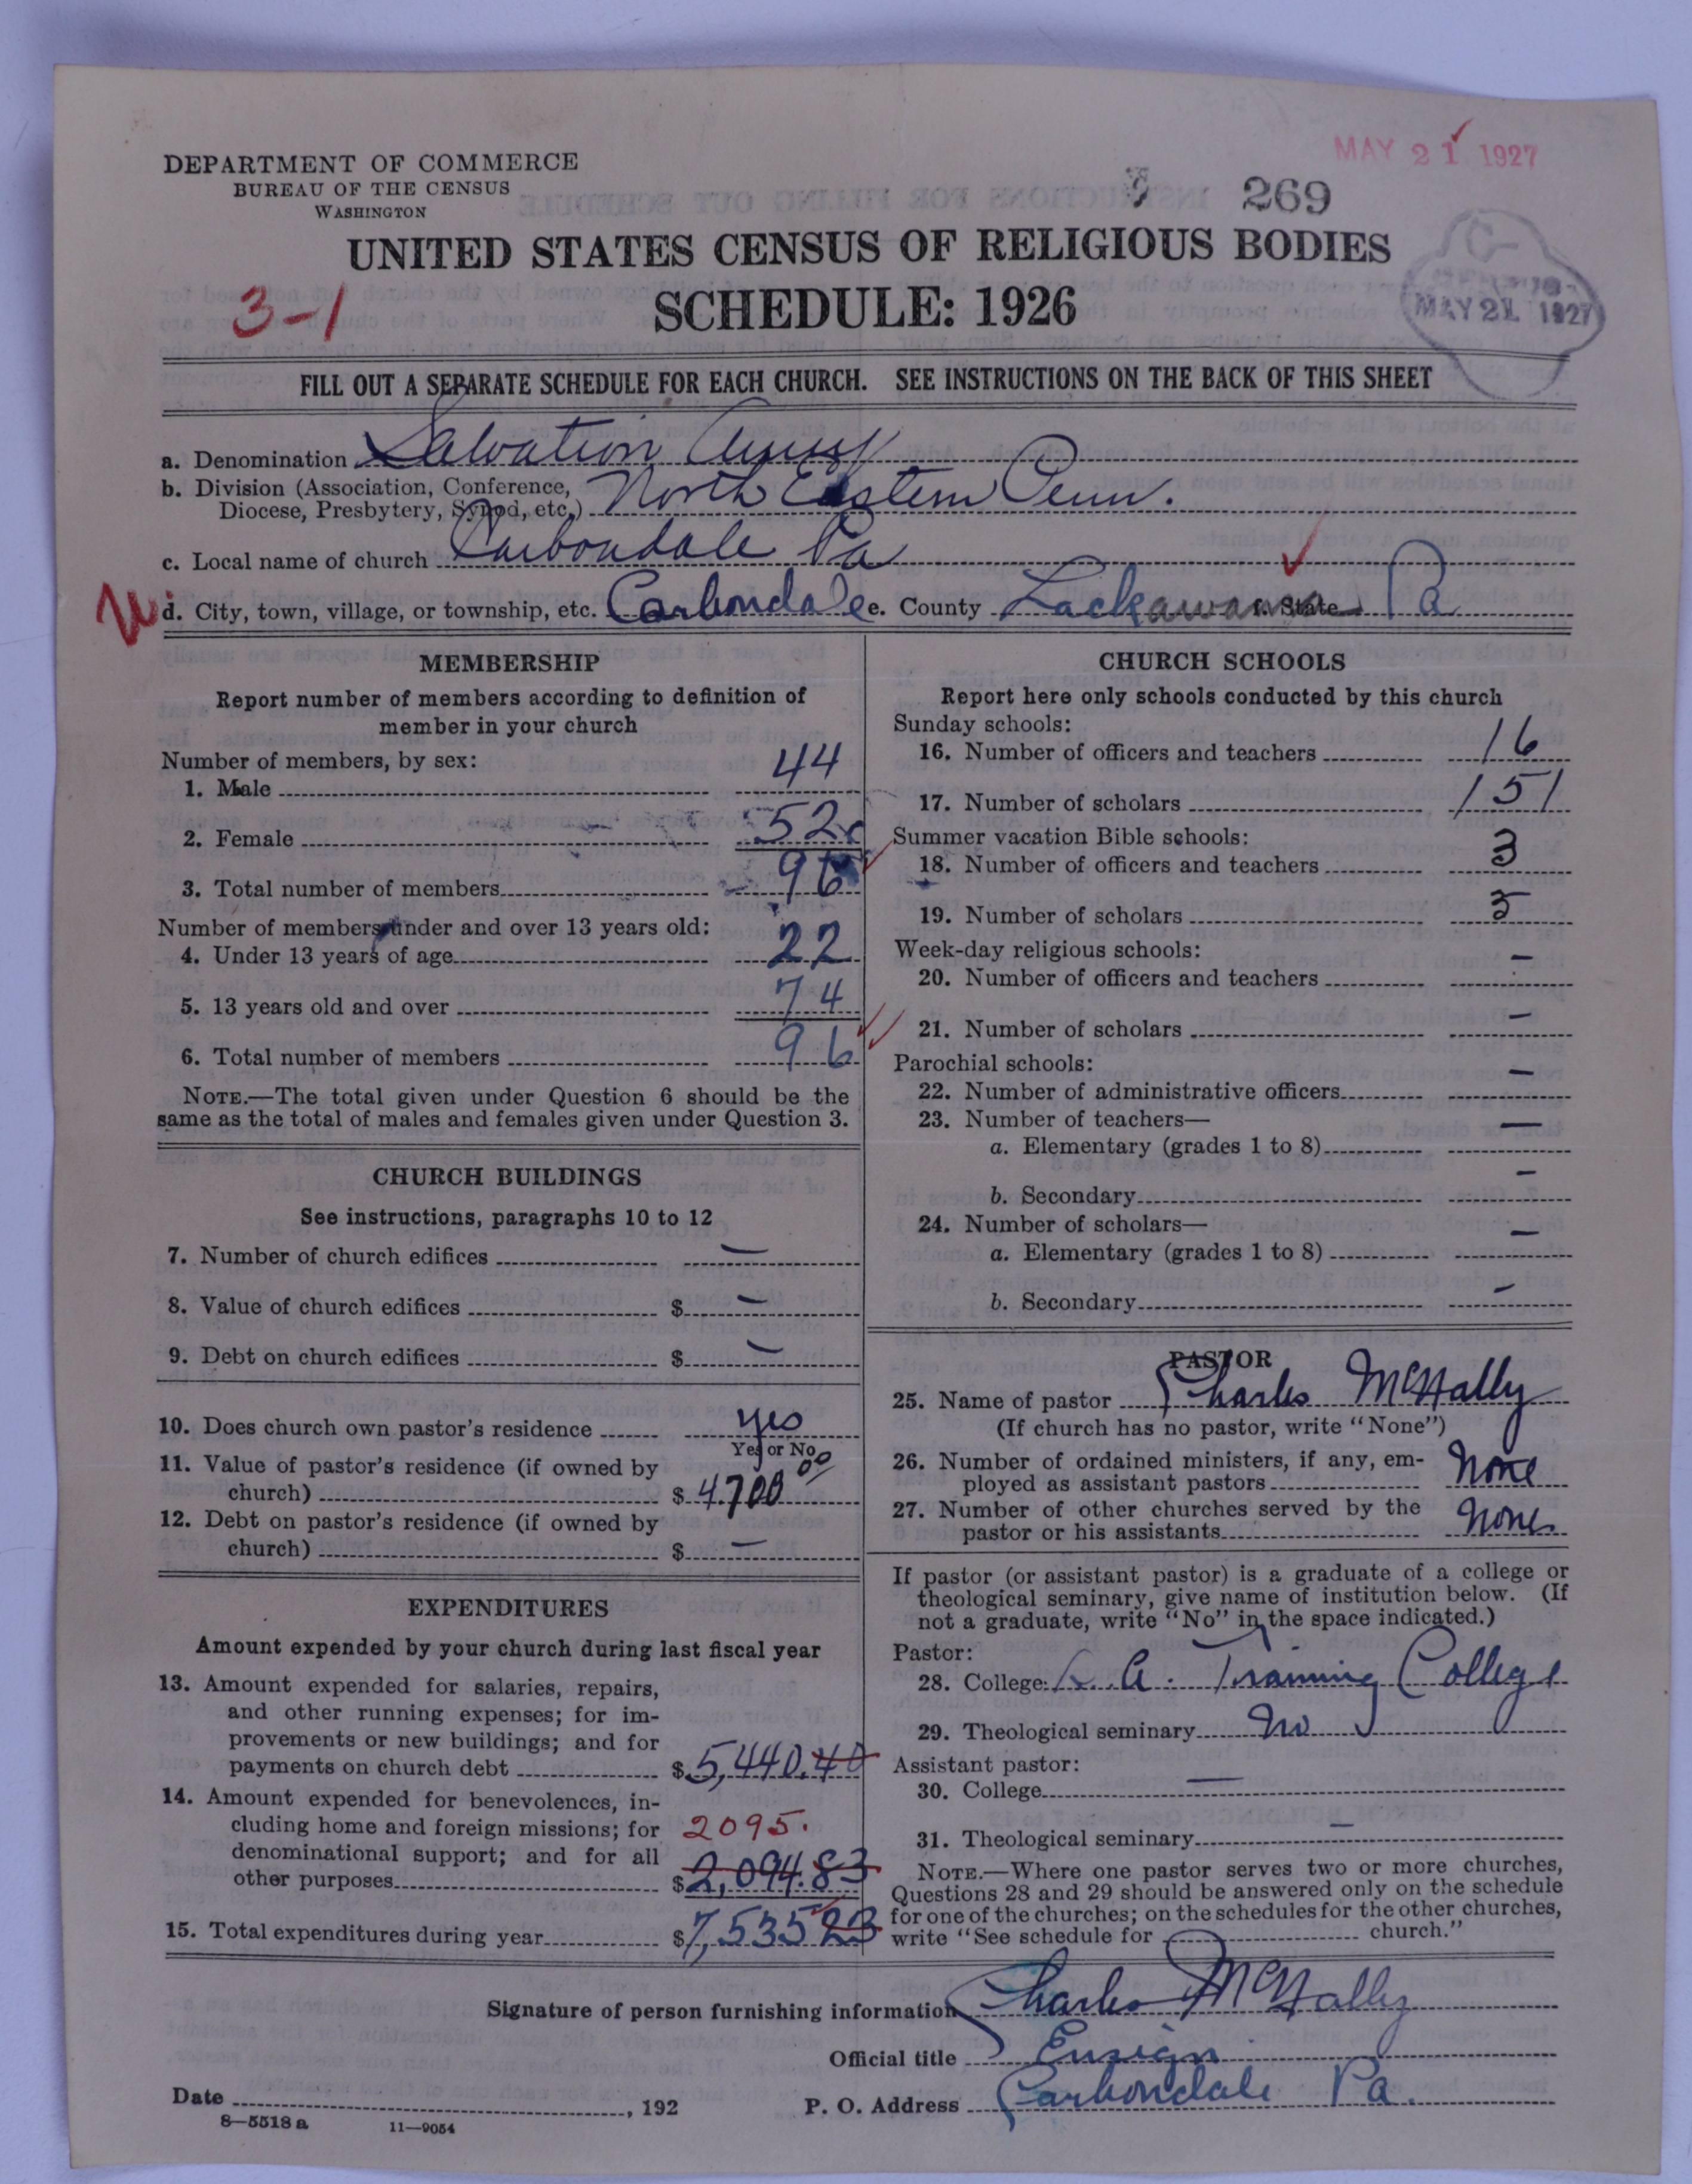 MAY 21 1927
DEPARTMENT OF COMMERCE
BUREAU OF THE CENSUS
WASHINGTON
269
UNITED STATES CENSUS OF RELIGIOUS BODIES
3-1
SCHEDULE: 1926
MAY 21 1927
FILL OUT A SEPARATE SCHEDULE FOR EACH CHURCH. SEE INSTRUCTIONS ON THE BACK OF THIS SHEET
a. Denomination Salvation Army
b. Division (Association, Conference, Diocese, Presbytery, Synod, etc.) North Eastern Penn.
c. Local name of church Carbondale Pa
d. City, town, village, or township, etc. Carbondale e. County Lackawanna State Pa
MEMBERSHIP
Report number of members according to definition of
member in your church
Number of members, by sex:
1. Male 44
2. Female 52
3. Total number of members 96
Number of members under and over 13 years old:
4. Under 13 years of age 22
5. 13 years old and over 74
6. Total number of members 96
NOTE.—The total given under Question 6 should be the
same as the total of males and females given under Question 3.
CHURCH BUILDINGS
See instructions, paragraphs 10 to 12
7. Number of church edifices —
8. Value of church edifices $ —
9. Debt on church edifices $ —
10. Does church own pastor's residence yes
Yes or No
11. Value of pastor's residence (if owned by
church) $ 4.700 00
12. Debt on pastor's residence (if owned by
church) $ —
EXPENDITURES
Amount expended by your church during last fiscal year
13. Amount expended for salaries, repairs,
and other running expenses; for im-
provements or new buildings; and for
payments on church debt $ 5,440.40
14. Amount expended for benevolences, in-
cluding home and foreign missions; for 2095.
denominational support; and for all
other purposes $ 2,094.83
15. Total expenditures during year $ 7,535 23
CHURCH SCHOOLS
Report here only schools conducted by this church
Sunday schools:
16. Number of officers and teachers 16
17. Number of scholars 151
Summer vacation Bible schools:
18. Number of officers and teachers 3
19. Number of scholars
Week-day religious schools:
20. Number of officers and teachers —
21. Number of scholars —
Parochial schools:
22. Number of administrative officers —
23. Number of teachers—
a. Elementary (grades 1 to 8) —
b. Secondary —
24. Number of scholars—
a. Elementary (grades 1 to 8) —
b. Secondary —
PASTOR
25. Name of pastor Charles McNally
(If church has no pastor, write "None")
26. Number of ordained ministers, if any, em-
ployed as assistant pastors None
27. Number of other churches served by the
pastor or his assistants None
If pastor (or assistant pastor) is a graduate of a college or
theological seminary, give name of institution below. (If
not a graduate, write "No" in the space indicated.)
Pastor:
28. College: S. A. Training College
29. Theological seminary No
Assistant pastor:
30. College —
31. Theological seminary —
NOTE.—Where one pastor serves two or more churches,
Questions 28 and 29 should be answered only on the schedule
for one of the churches; on the schedules for the other churches,
write "See schedule for church."
Signature of person furnishing information Charles McNally
Official title Ensign
Date , 192 P. O. Address Carbondale Pa.
8—5518 a 11—9054